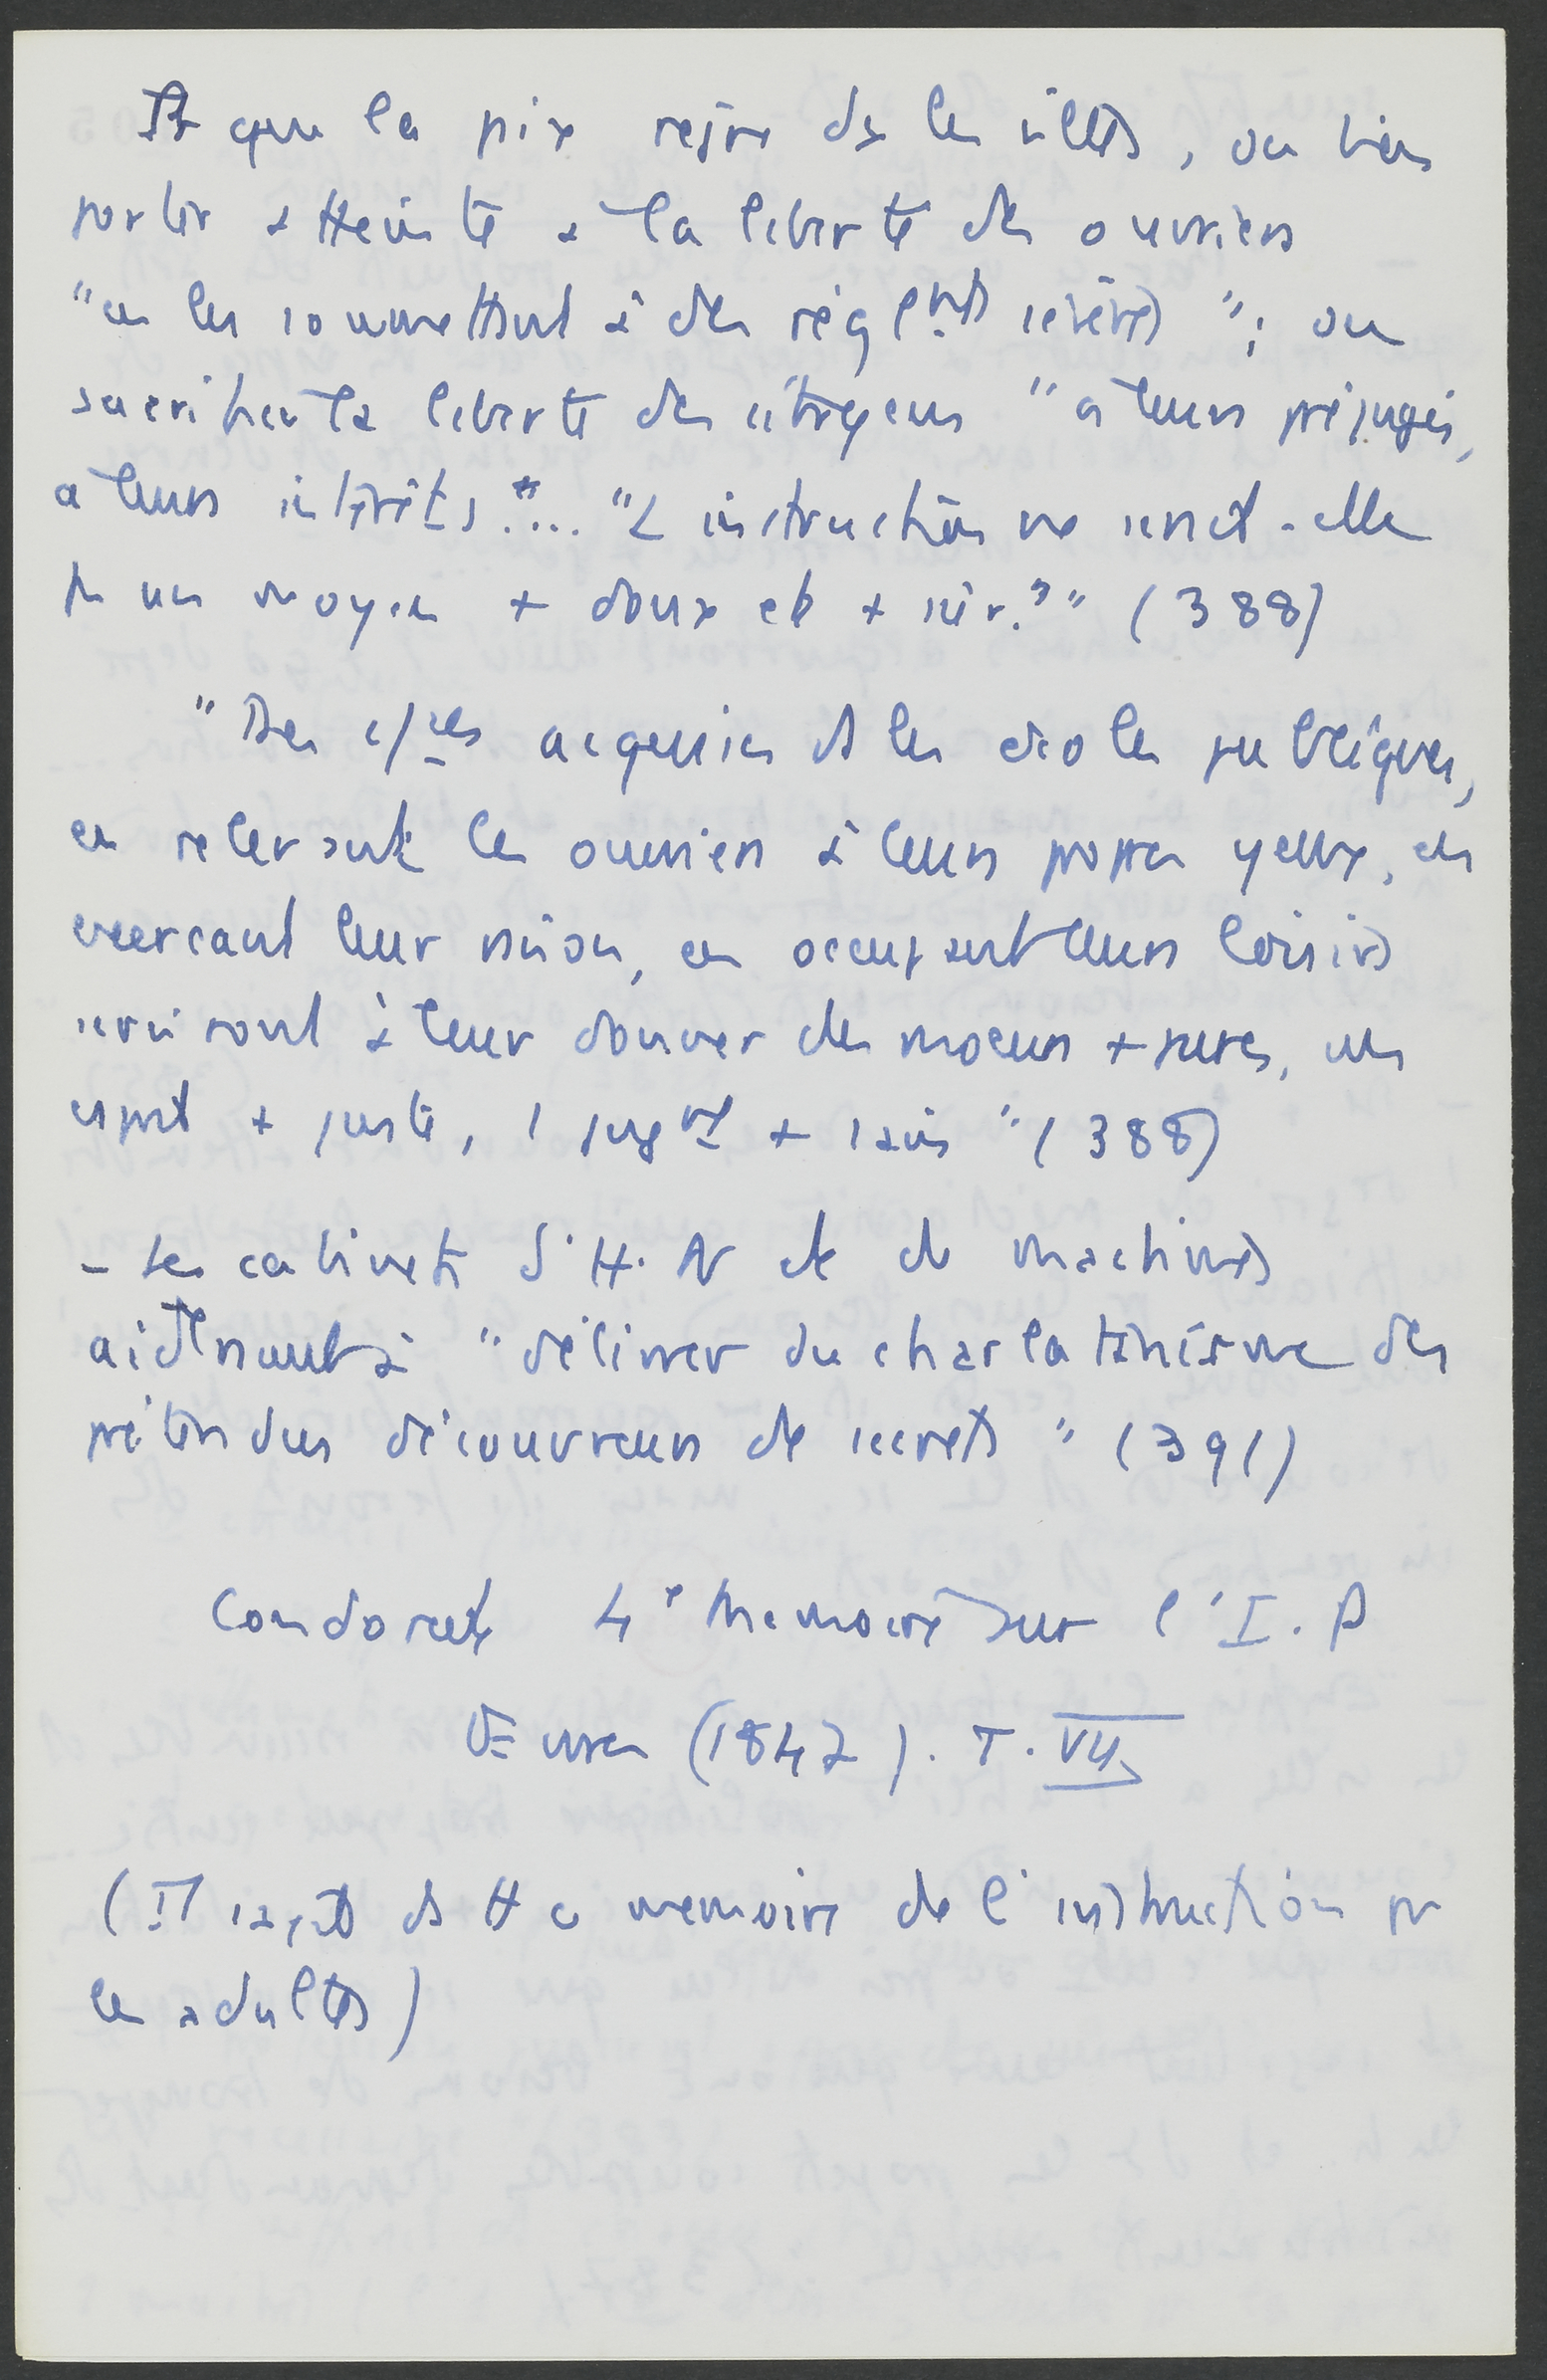 Et que la paix règne ds les villes, ou bien
porter atteinte à la liberté des ouvriers
"en les soumettant à des règlmts sévères"; ou
sacrifier la liberté des citoyens "à leurs préjugés,
à leurs intérêts."... "L'instruction ne serait-elle
pas un moyen + doux et + sûr?" (388)
"Des c/ces acquises ds les écoles publiques,
en relevant les ouvriers à leurs propres yeux, en
exerçant leur raison, en occupant leurs loisirs
serviront à leur donner des moeurs + pures, un
esprit + juste, 1 jugmt + sain" (388)
- Les cabinets d'H. N et de machines
aideraient à "délivrer du charlatanisme des
prétendus découvreurs de secrets" (391)
Condorcet 4e Mémoire sur l'I. P
Œuvres (1847). T. VII
(Il s'agit ds tt ce mémoire de l'instruction pr
les adultes)